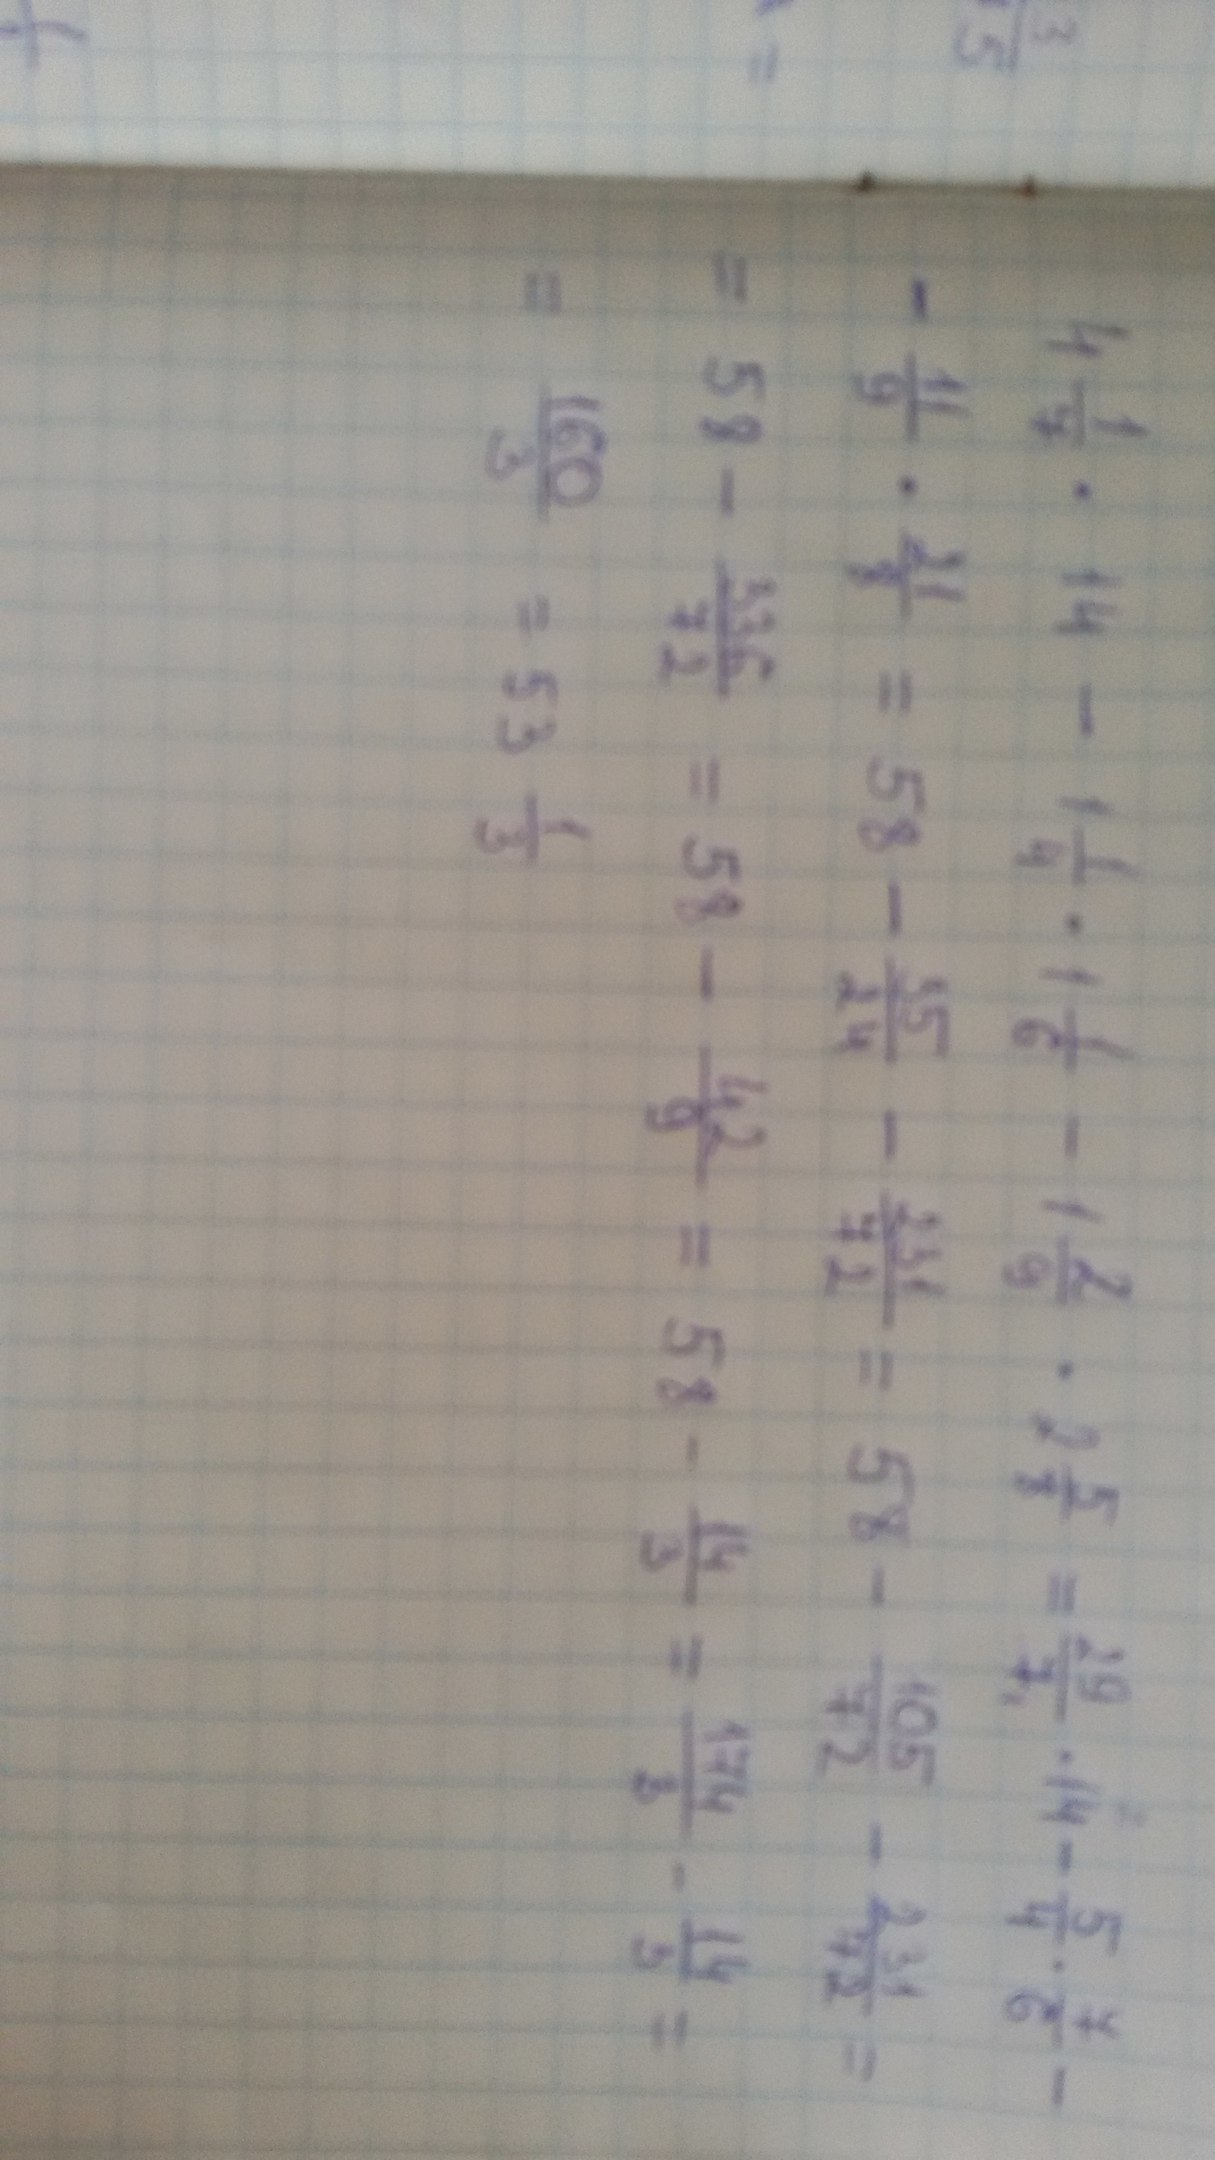 4 1/7 · 14 - 1 1/4 · 1 1/6 - 1 2/9 · 2 5/8 = 29/7 · 14 - 5/4 · 7/6 -
- 11/9 · 21/8 = 58 - 35/24 - 231/72 = 58 - 105/72 - 231/72 =
= 58 - 336/72 = 58 - 42/9 = 58 - 14/3 = 174/3 - 14/3 =
= 160/3 = 53 1/3